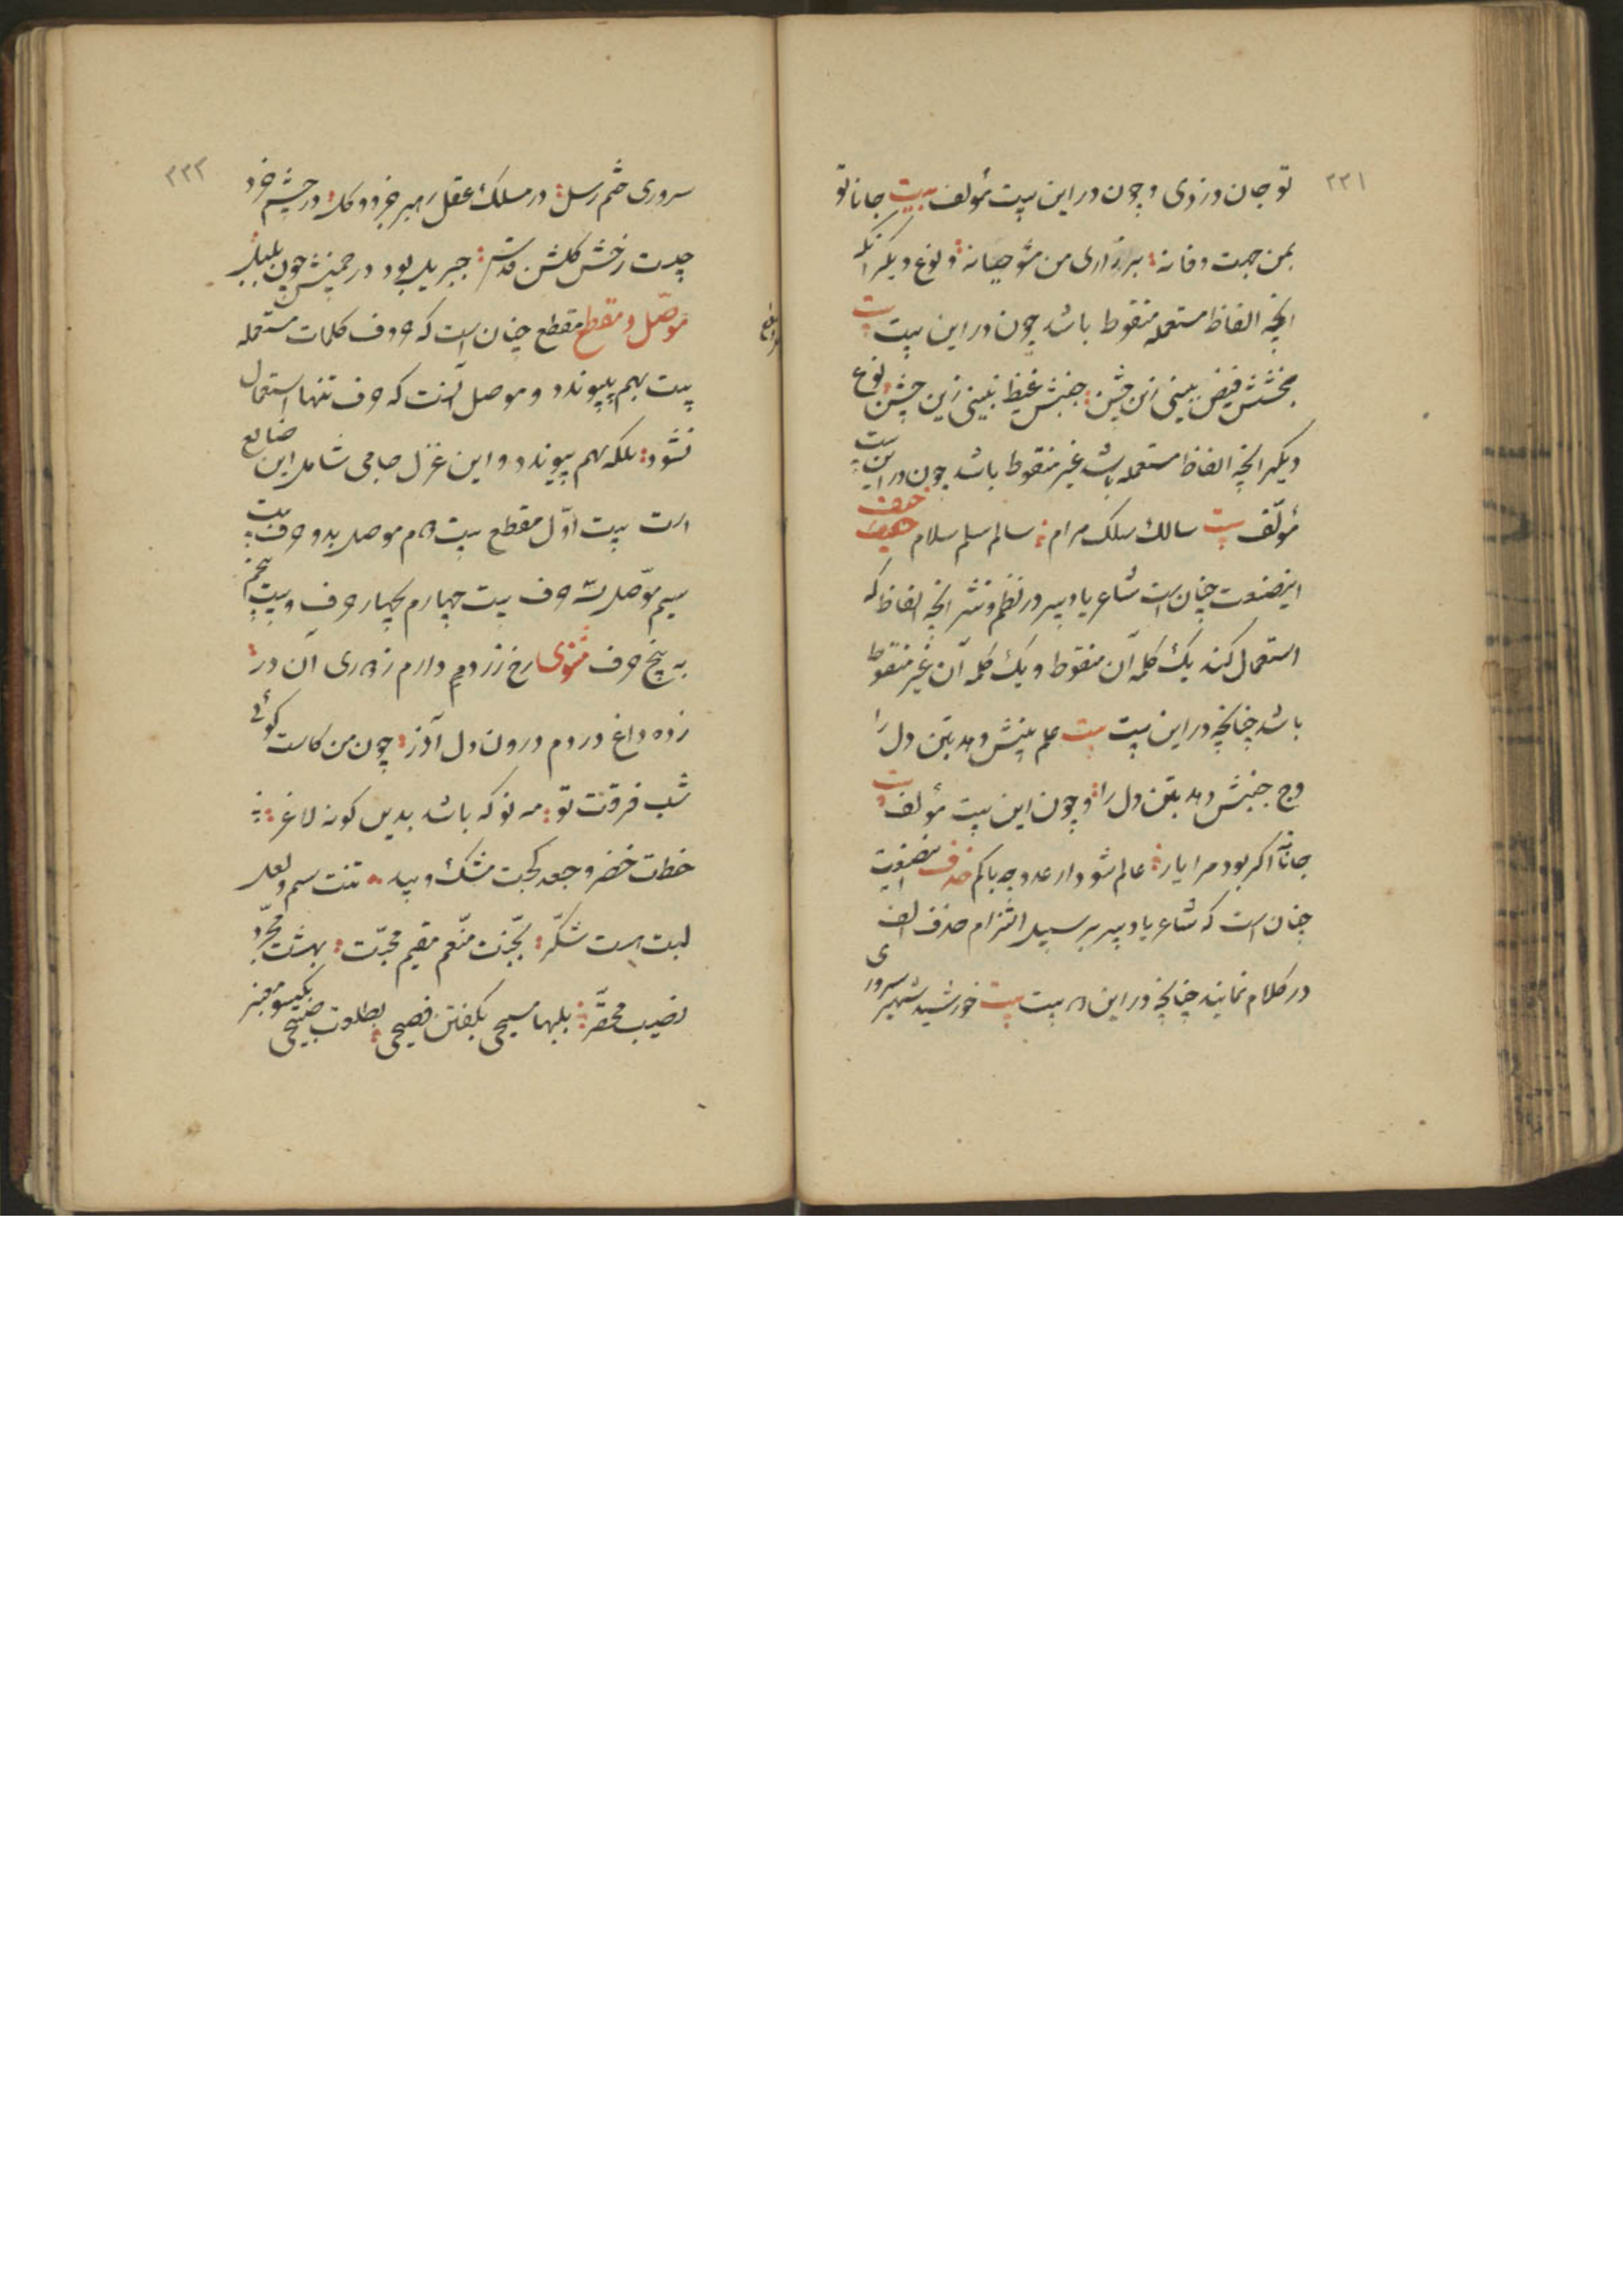 ۲۲۱
تو جان دزدی و چون در این بیت مؤلف بیت جانا تو
بمن جهت وفا نه بر زاری من مشو نه و نوع دیگر آنکه
انچه الفاظ مستعمله منقوط باشد چون در این بیت بیت
بخشش فیض ببینی زین جشن جنبش غیظ نبینی زین جشن نوع
دیگر انچه الفاظ مستعمله باشد غیر منقوط باشد چون در این بیت
مؤلف بیت سالك سلك مرام سالم سلم سلام خیفا
اینصنعت چنان است شاعر یا دبیر در نظم و نثر انچه الفاظ که
استعمال کند یك کلمه آن منقوط و یك کلمه آن غیر منقوط
باشد چنانچه در این بیت بیت علم بینش دهد بتن دل را
وج جنبش دهد بتن دل را و چون این بیت مؤلف بیت
جانا اکر بود مرا یار عالم شود ار عدو چه باکم حذف اینصنعت
چنان است که شاعر یا دبیر بر سبیل التزام حذف الف
در کلام نمایند چنانچه در این دو بیت بیت خورشید سپهر سروری
۲۲۲
سروری ختم رسل در مسلك عقل رهبر جزو و کل در چشم خرد
چیست رخش کلشن قدس جبریل بود در چمنش چون بلبل
موصّل و مقطع مقطع چنان است که حروف کلمات مستعمله
بیت بهم پیوندد و موصل آنست که حرف تنها استعمال
نشود بلکه بهم پیوندد و این غزل جامی شامل این ضایع
است بیت اوّل مقطع بیت دوم موصل بدو حرف بیت
سیم موصل سه حرف بیت چهارم بچهار حرف و بیت پنجم
به پنج حرف مثنوی رخ زرد دارم ز دوری آن در
زده داغ دردم درون دل آذر چون من کاست کوئی
شب فرقت تو مه نو که باشد بدین کونه لاغر
خطت خضر و جعد کجت مشك و پیه تنت سیم و لعل
لبت هست شکّر بجنّت منعّم مقیم محبّت بهشت مخلّد
نصیب محقّر بلبها مسیحی بکفتن فصیحی بطلعت صبیحی بکیسو معنبر